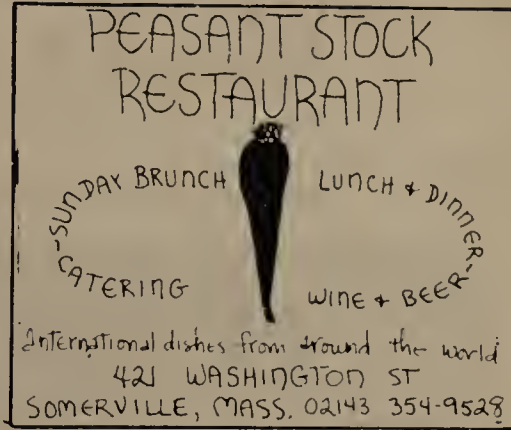 PEASANT STOCK
RESTAURANT
-SUNDAY BRUNCH
LUNCH & DINNER-
CATERING
WINE & BEER
International dishes from around the world
421 WASHINGTON ST
SOMERVILLE, MASS. 02143 354-9528